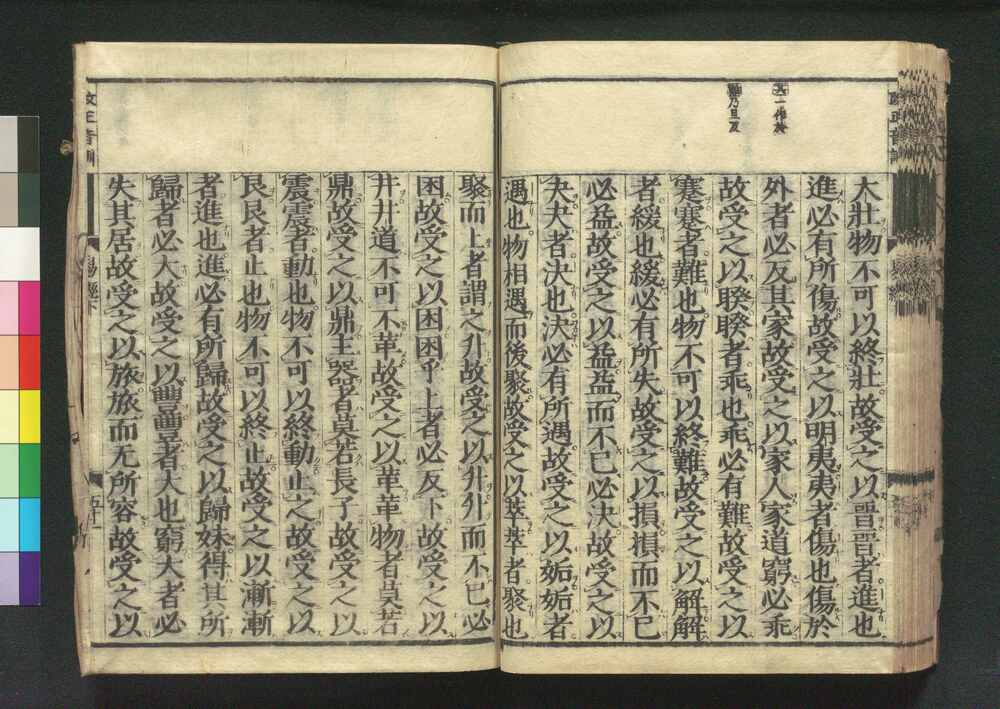 其一作於
難乃旦反
大壯物不可以終壯故受之以晉晉者進也
進必有所傷故受之以明夷夷者傷也傷於
外者必反其家故受之以家人家道窮必乖
故受之以睽睽者乖也乖必有難故受之以
蹇蹇者難也物不可以終難故受之以解解
者緩也緩必有所失故受之以損損而不已
必益故受之以益益而不已必決故受之以
夬夬者決也決必有所遇故受之以姤姤者
遇也物相遇而後聚故受之以萃萃者聚也
聚而上者謂之升故受之以升升而不已必
困故受之以困困乎上者必反下故受之以
井井道不可不革故受之以革革物者莫若
鼎故受之以鼎主器者莫若長子故受之以
震震者動也物不可以終動止之故受之以
艮艮者止也物不可以終止故受之以漸漸
者進也進必有所歸故受之以歸妹得其所
歸者必大故受之以豐豐者大也窮大者必
失其居故受之以旅旅而无所容故受之以
改正音訓
易經下
五十一